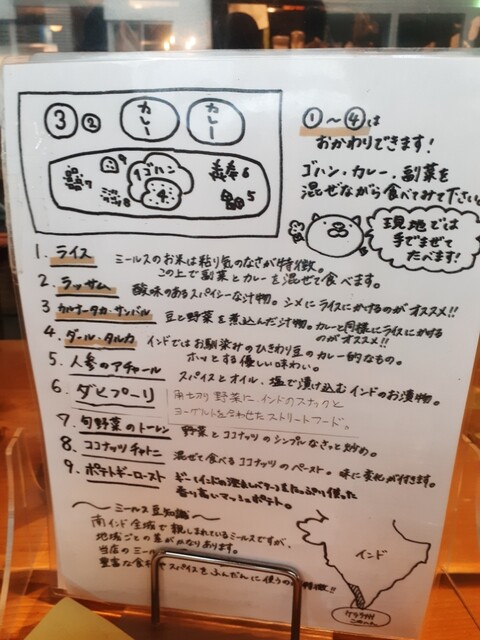 ③ ② カレー カレー
①ゴハン
4
7
6
8
5
①〜④は
おかわりできます!
ゴハン・カレー・副菜を
混ぜながら食べてみて下さい
現地では
手でまぜて
たべます!
1. ライス ミールスのお米は粘り気のなさが特徴。
この上で副菜とカレーを混ぜて食べます。
2. ラッサム 酸味のあるスパイシーな汁物。シメにライスにかけるのがオススメ!!
3. カルナータカ・サンバル 豆と野菜を煮込んだ汁物。カレーと同様にライスにかける
のがオススメ!!
4. ダール・タルカ インドではお馴染みのひきわり豆のカレー的なもの。
ホッとする優しい味わい。
5. 人参のアチャール スパイスとオイル、塩で漬け込むインドのお漬物。
6. ダヒプーリ 角切り野菜にインドのスナックと
ヨーグルトを合わせたストリートフード。
7. 旬野菜のトーレン 野菜とココナッツのシンプルなさっと炒め。
8. ココナッツチャトニ 混ぜて食べるココナッツのペースト。味に変化が付きます。
9. ポテトギーロースト ギー(インドの澄ましバター)をたっぷり使った
香り高いマッシュポテト。
〜ミールス豆知識〜
南インド全域で親しまれているミールスですが、
地域ごとの差がかなりあります。
当店のミール
豊富な食材やスパイスをふんだんに使うのが特徴!!
インド
ケララ州
このへん